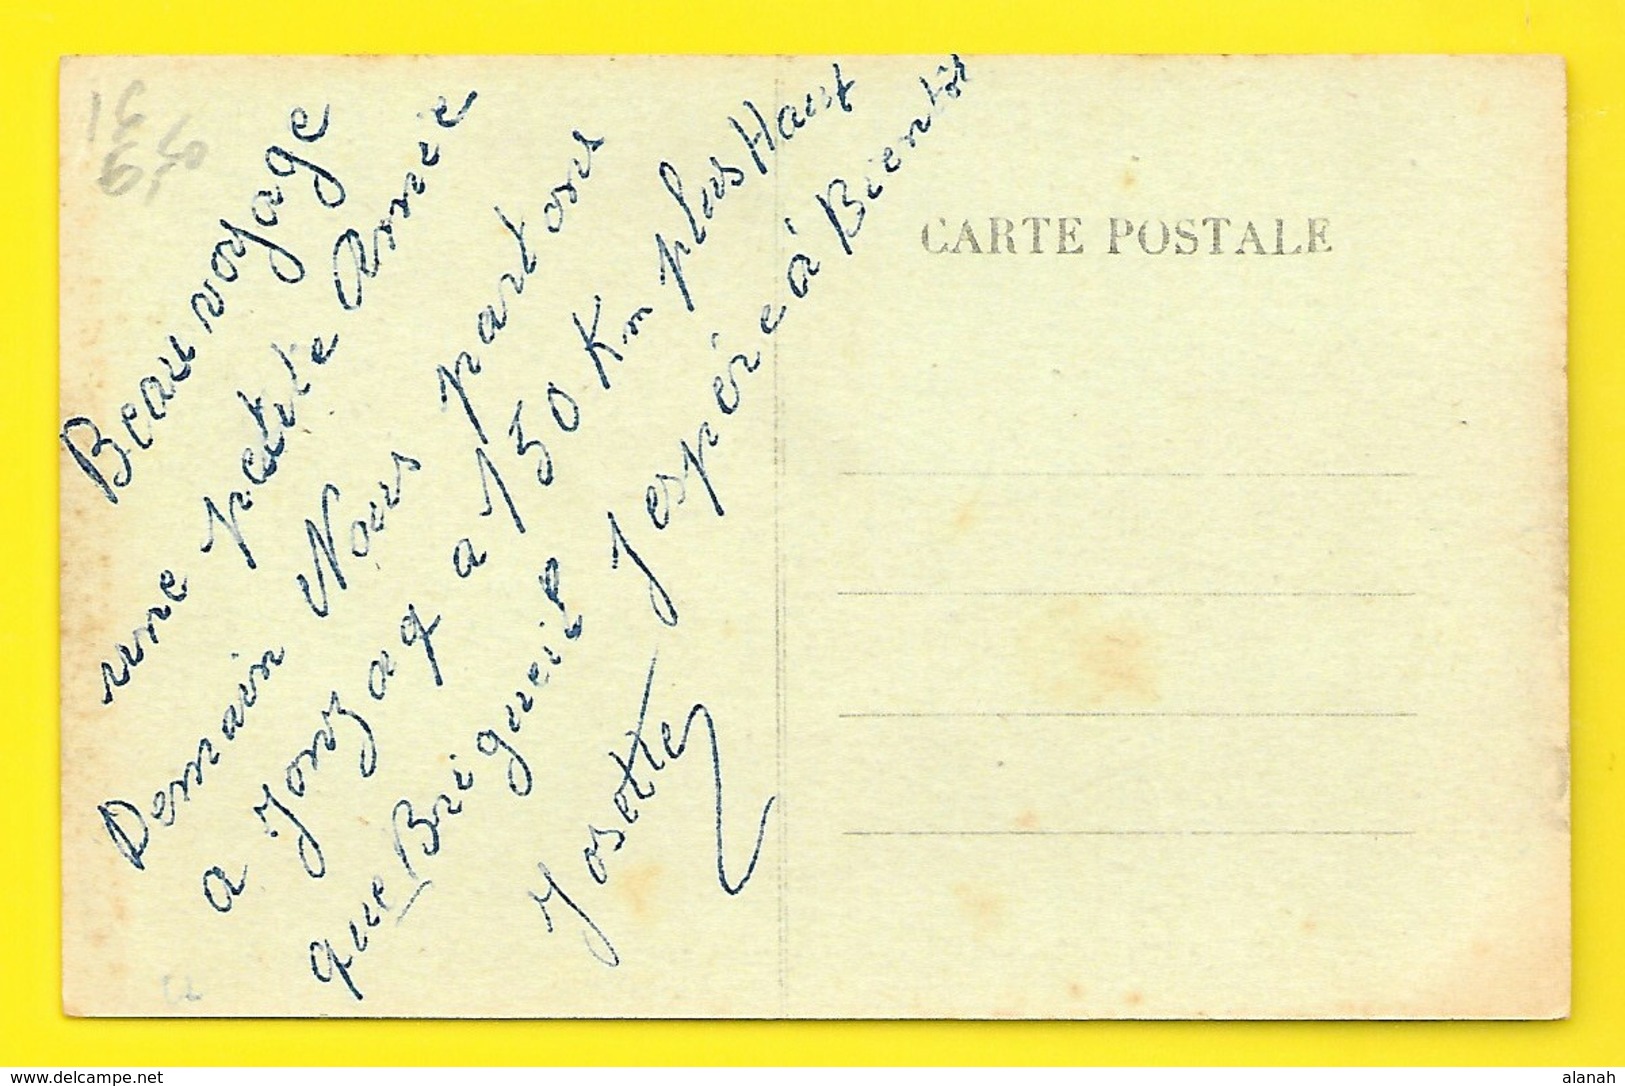 Beau voyage
une petite Amie
Demain Nous partons
a Jonzaq a 150 Km plus Haut
que Brigueil J espère à Bientôt
Josette
CARTE POSTALE
www.delcampe.net
alanah